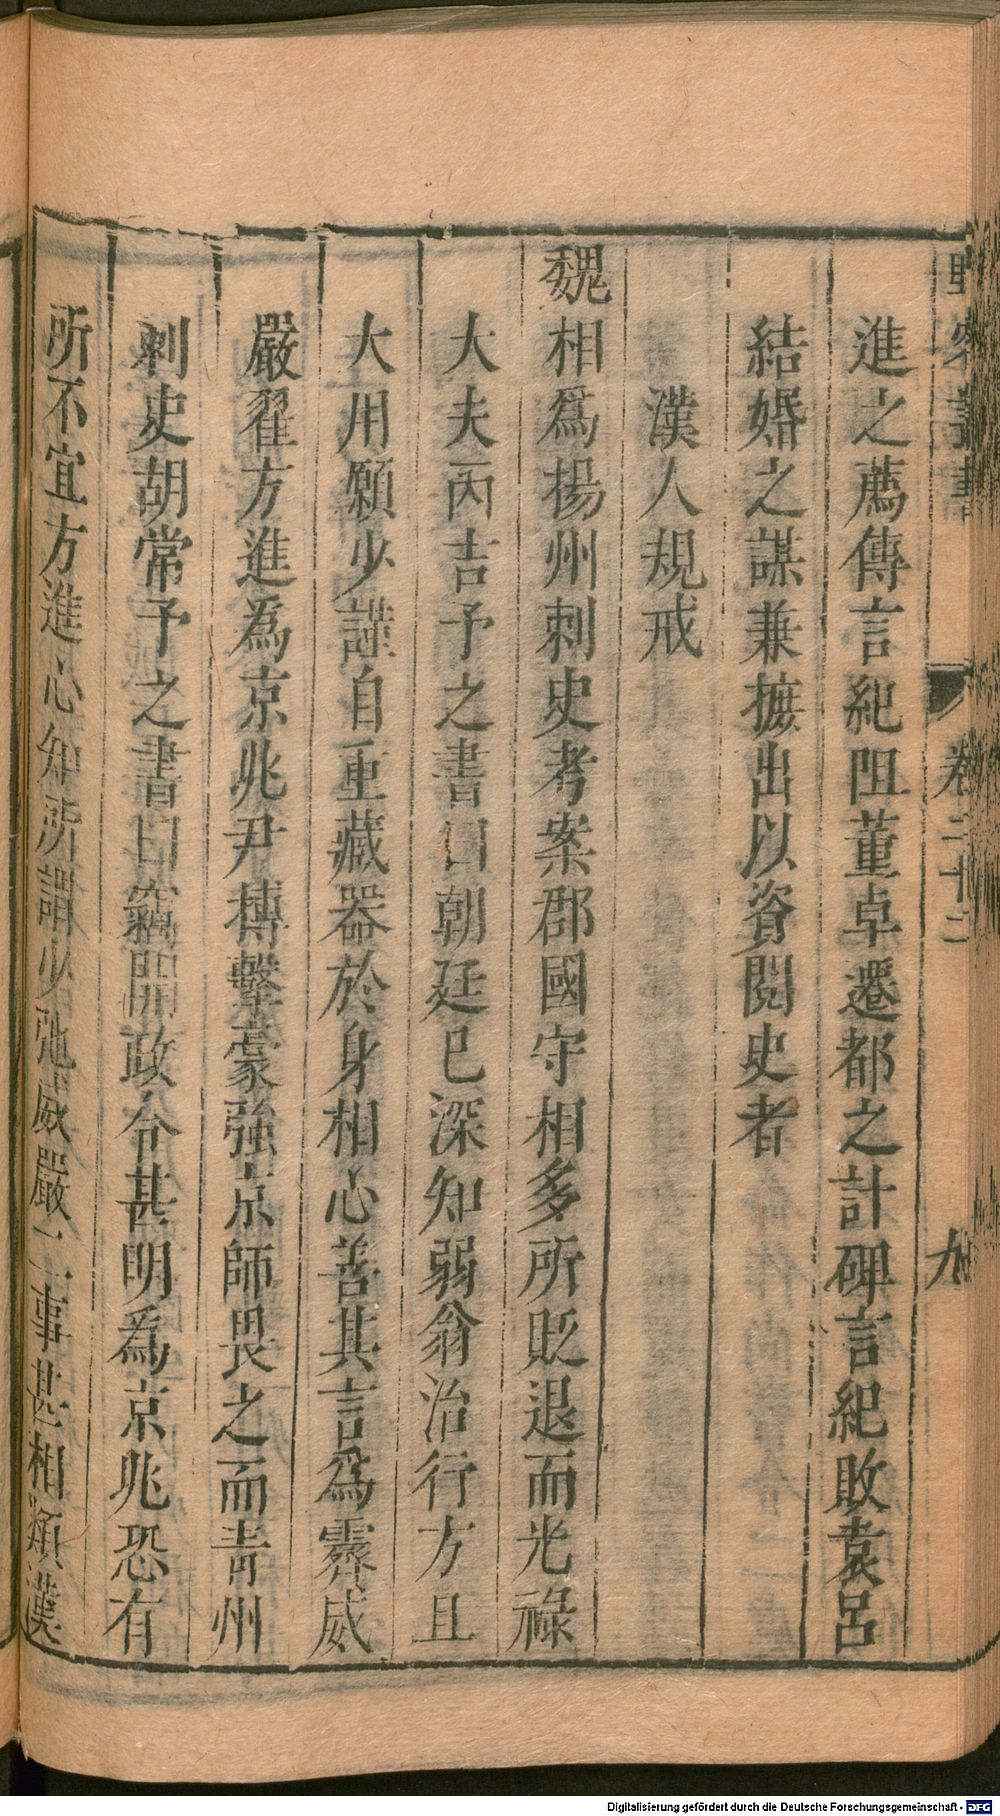 野客叢書 卷二十二 九
進之薦傳言紀阻董卓遷都之計碑言紀敗袁呂
結婚之謀兼摭出以資閱史者
漢人規戒
魏相爲揚州刺史考案郡國守相多所貶退而光祿
大夫丙吉予之書曰朝廷已深知弱翁治行方且
大用願少謹自重藏器於身相心善其言爲霽威
嚴翟方進爲京兆尹搏擊豪強京師畏之而青州
刺史胡常予之書曰竊聞政令甚明爲京兆恐有
所不宜方進心知所謂少弛威嚴二事甚相類漢
Digitalisierung gefördert durch die Deutsche Forschungsgemeinschaft - DFG